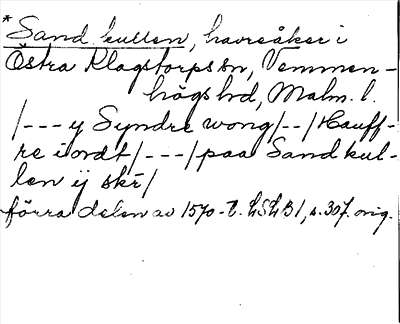 *Sandkullen, havreåker i
Östra Klagstorps sn, Vemmen-
högs hd, Malm. l.
/---y Syndre wong/--/Hauff-
re i ordt/---/paa Sandkul-
len ij skr/
förra delen av 1570-t. LSHB1, s. 307. orig.